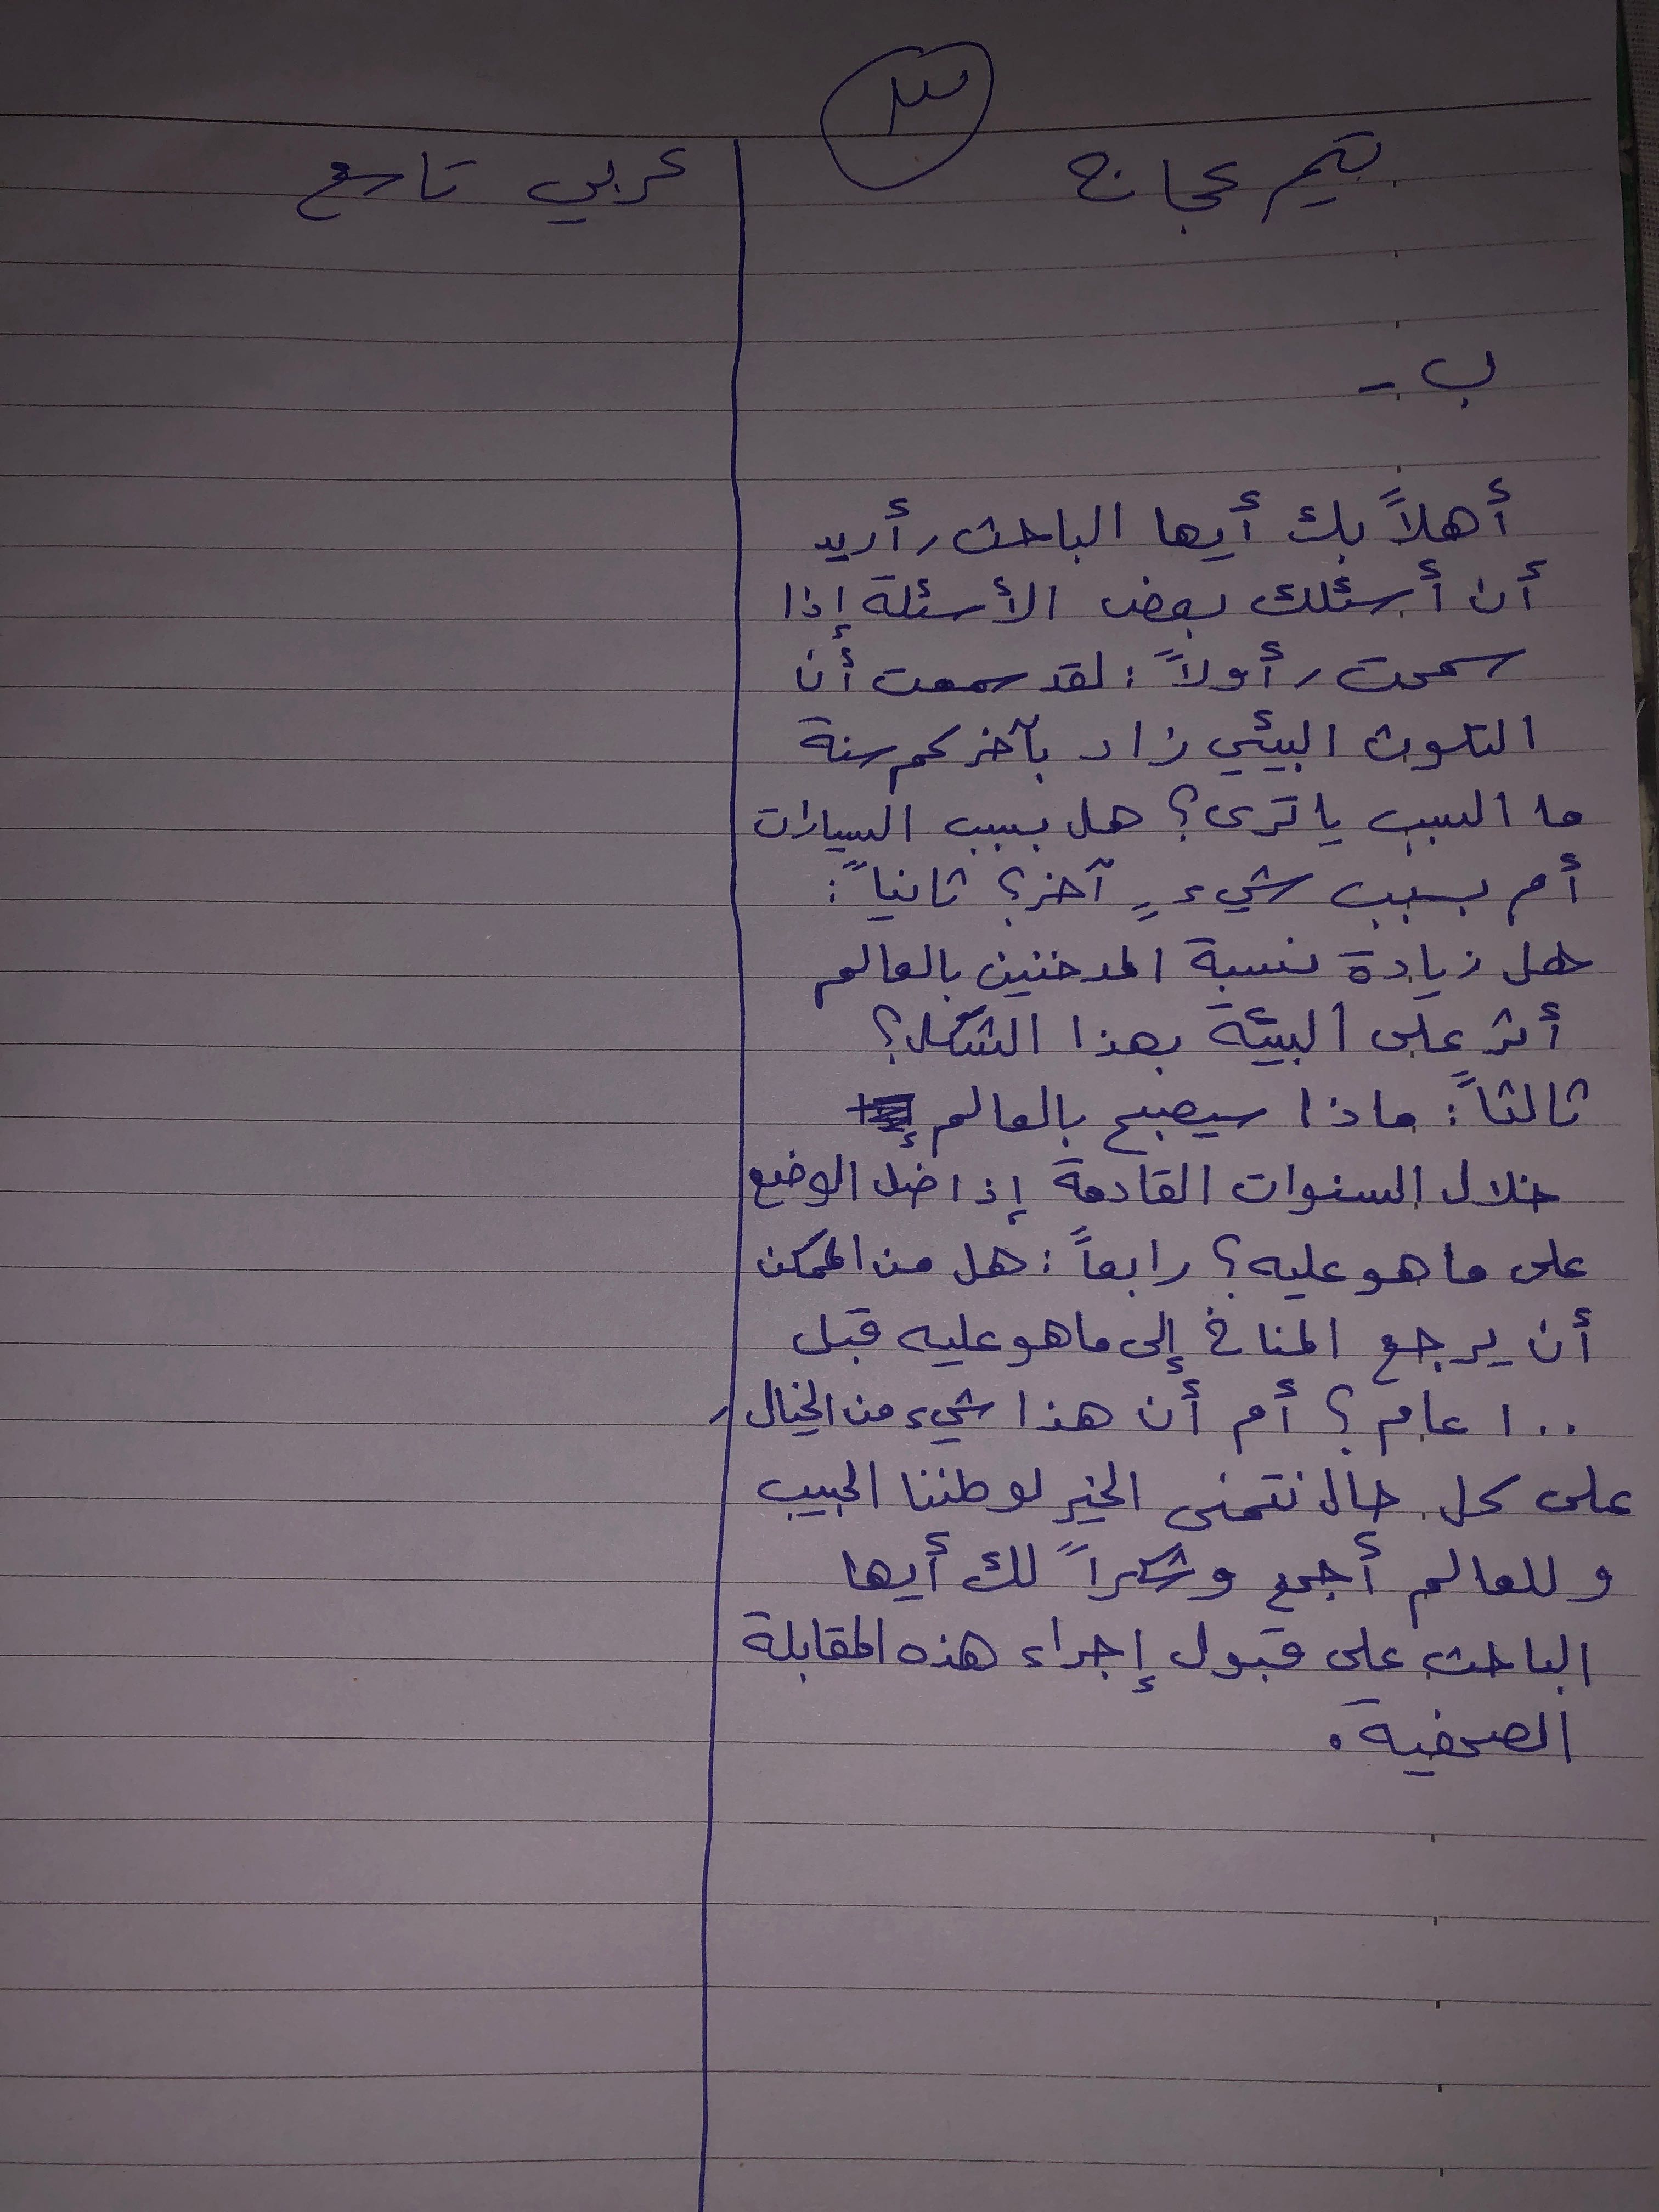 ٣
تيم عجاج
عربي تاسع
ب -
أهلاً بك أيها الباحث، أريد
أن أسئلك بعض الأسئلة إذا
سمحت، أولاً: لقد سمعت أن
التلوث البيئي زاد بآخر كم سنة
ما السبب يا ترى؟ هل بسبب السيارات
أم بسبب شيءٍ آخر؟ ثانياً:
هل زيادة نسبة المدخنين بالعالم
أثر على البيئة بهذا الشكل؟
ثالثاً: ماذا سيصبح بالعالم
خلال السنوات القادمة إذا ضل الوضع
على ما هو عليه؟ رابعاً: هل من الممكن
أن يرجع المناخ إلى ما هو عليه قبل
١٠٠ عام؟ أم أن هذا شيء من الخيال،
على كل حال نتمنى الخير لوطننا الحبيب
وللعالم أجمع وشكراً لك أيها
الباحث على قبول إجراء هذه المقابلة
الصحفية.